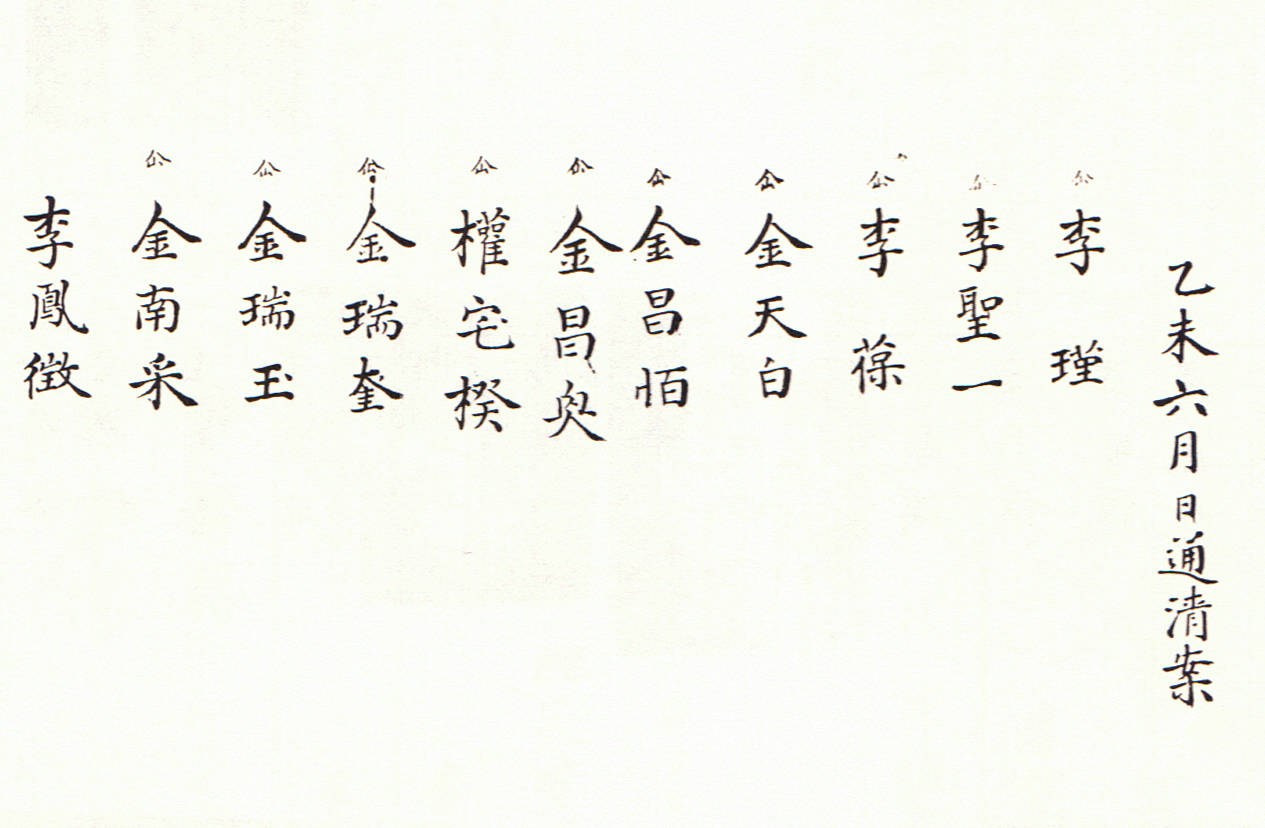 乙未六月日通清案
公 李瑾
公 李聖一
公 李葆
公 金天白
公 金昌佰
公 金昌奐
公 權宅揆
公 金瑞奎
公 金瑞玉
公 金南采
李鳳徵